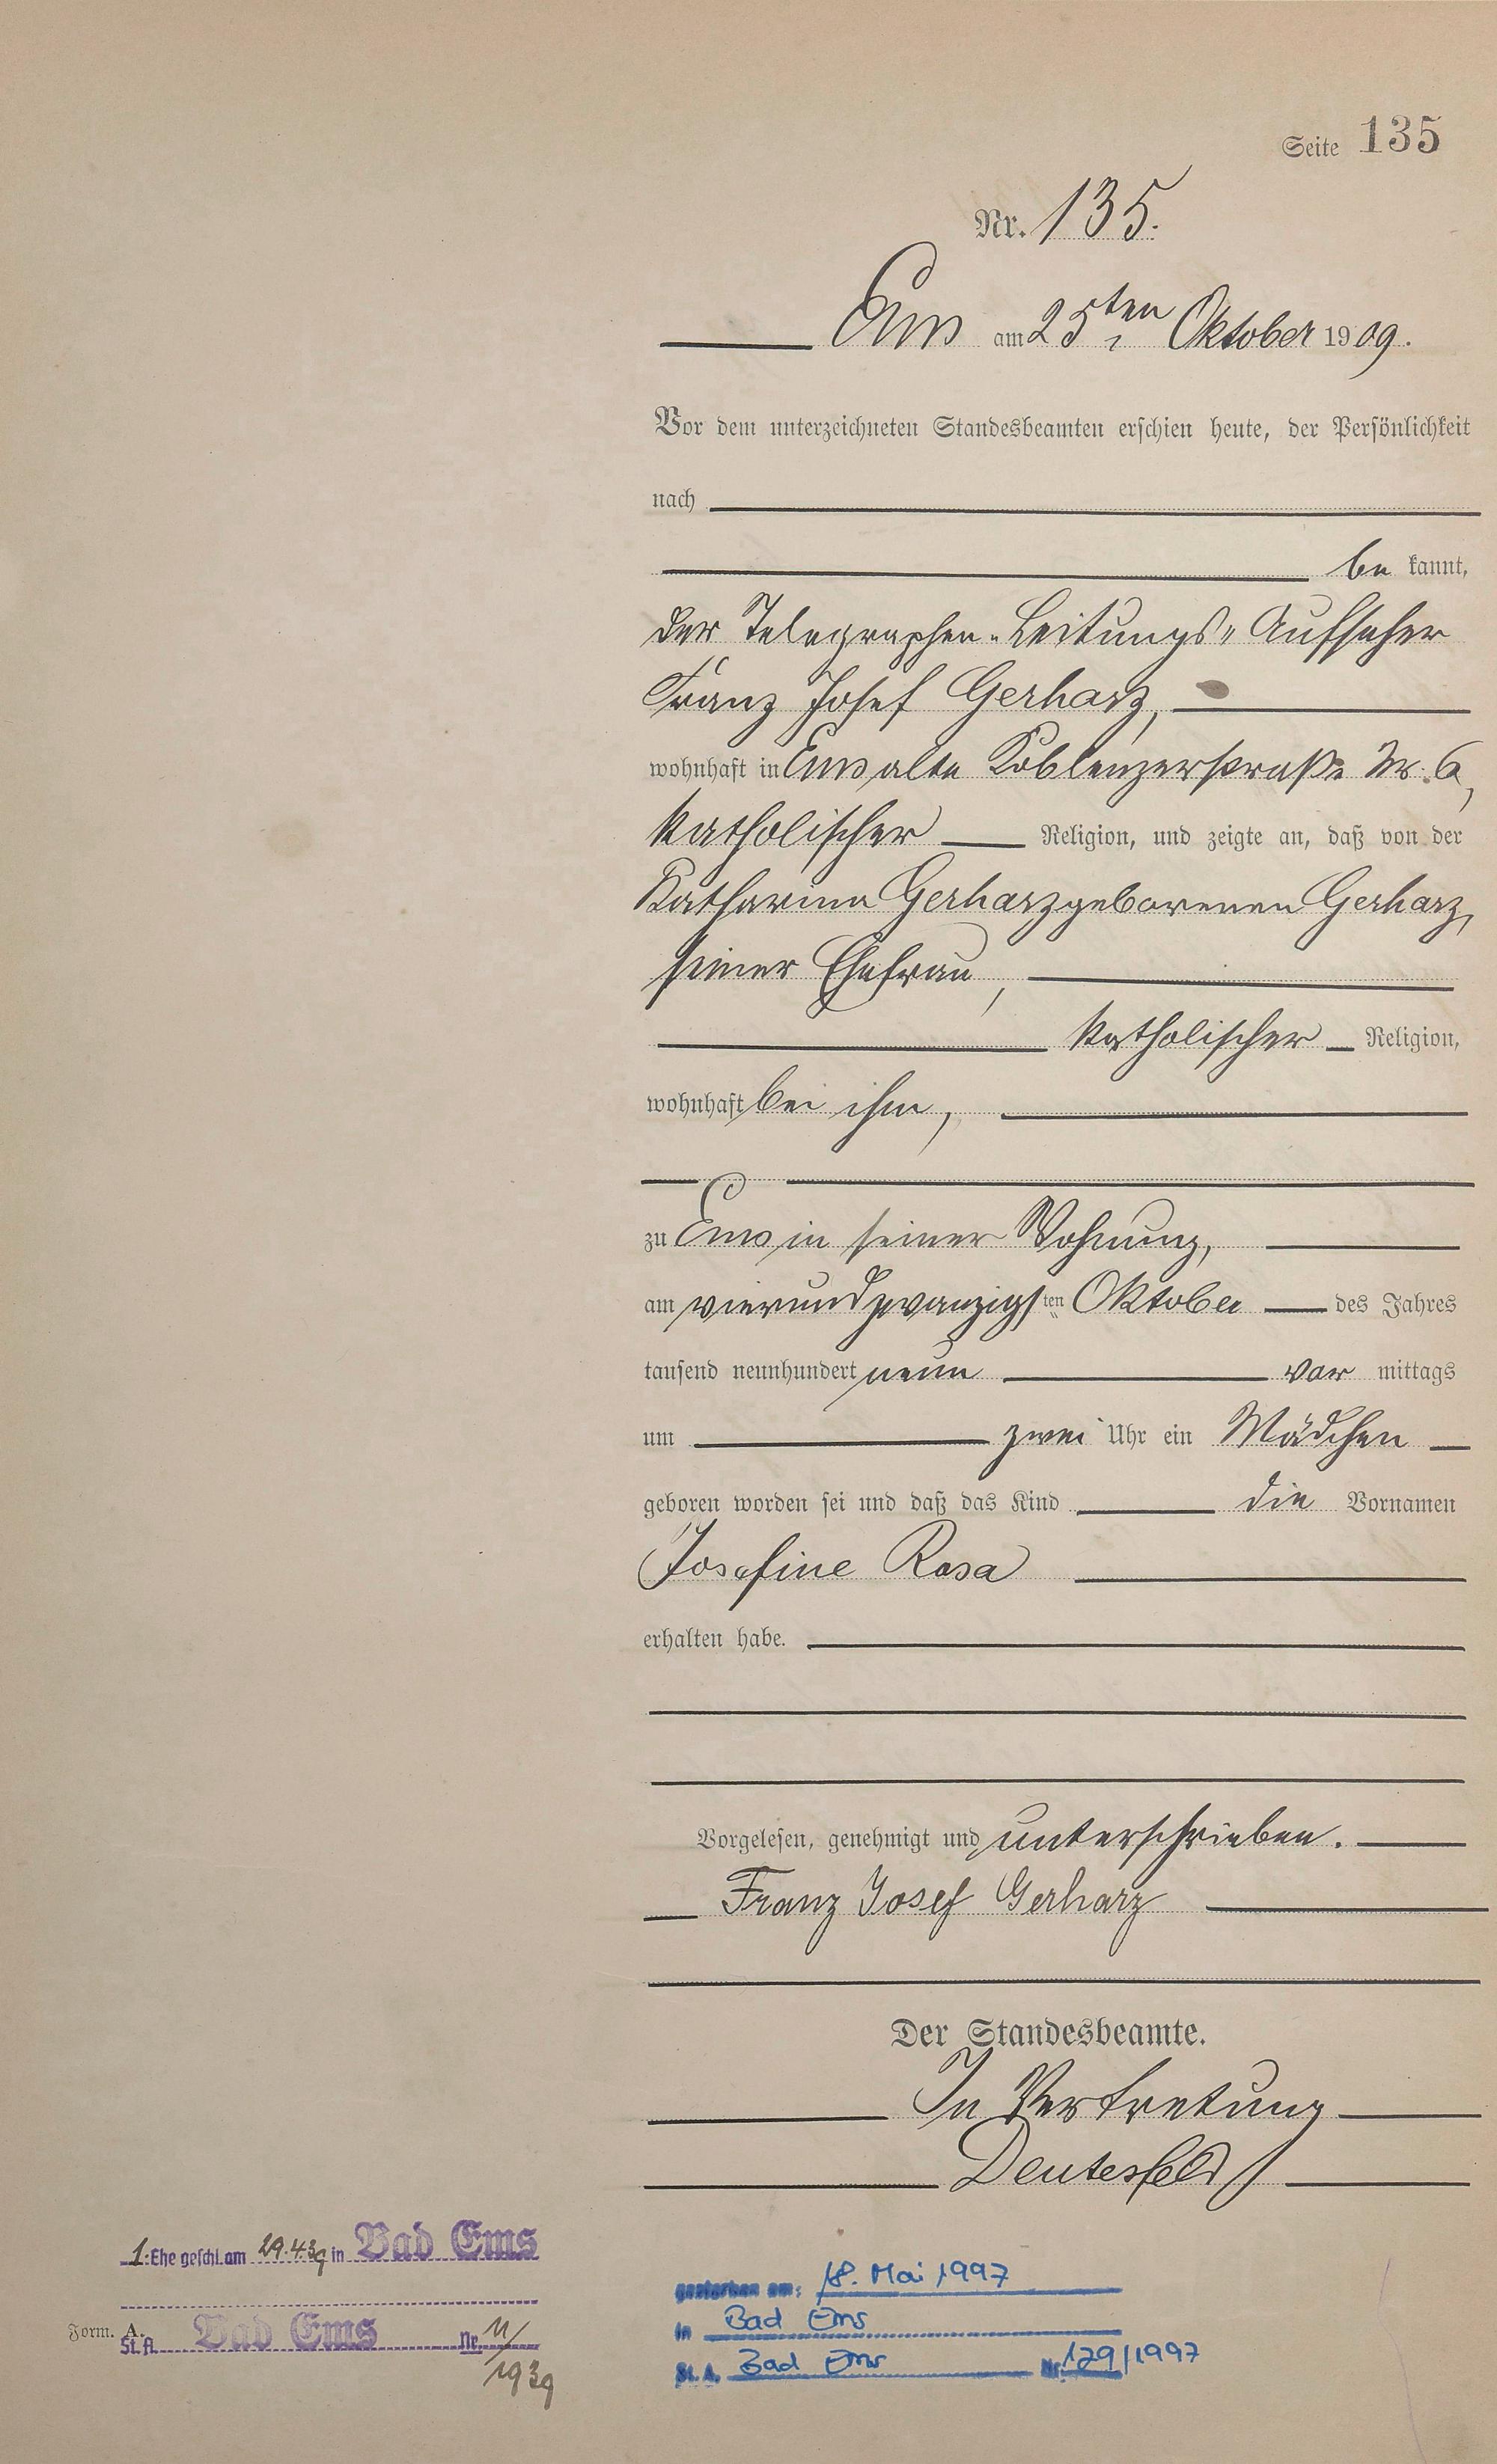 Seite 135
Nr. 135.
Ems am 25ten Oktober 1909.
Vor dem unterzeichneten Standesbeamten erschien heute, der Persönlichkeit
nach
be kannt,
der Telegraphen-Leitungs-Aufseher
Franz Josef Gerharz,
wohnhaft in Ems alte Koblenzerstraße Nr. 6,
katholischer Religion, und zeigte an, daß von der
Katharina Gerharz geborenen Gerharz,
seiner Ehefrau,
katholischer Religion,
wohnhaft bei ihm,
zu Ems in seiner Wohnung,
am vierundzwanzigsten Oktober des Jahres
tausend neunhundert neun vor mittags
um zwei Uhr ein Mädchen
geboren worden sei und daß das Kind die Vornamen
Josefine Rosa
erhalten habe.
Vorgelesen, genehmigt und unterschrieben.
Franz Josef Gerharz
Der Standesbeamte.
In Vertretung
Deutesfeld
1. Ehe geschl. am 29.4.39 in Bad Ems
Form. A.
St.A. Bad Ems Nr. 11/
1939
gestorben am: 18. Mai 1997
in Bad Ems
St. A. Bad Ems Nr. 129/1997